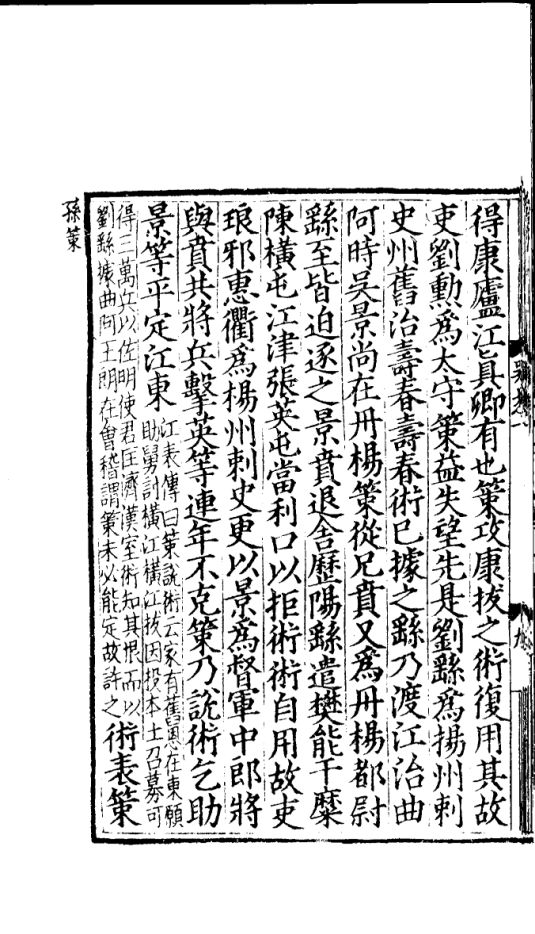 得康廬江真卿有也策攻康拔之術復用其故
吏劉勲爲太守策益失望先是劉繇爲揚州刺
史州舊治壽春壽春術已據之繇乃渡江治曲
阿時吳景尚在丹楊策從兄賁又爲丹楊都尉
繇至皆迫逐之景賁退舎歷陽繇遣樊能于糜
陳橫屯江津張英屯當利口以拒術術自用故吏
琅邪惠衢爲楊州刺史更以景爲督軍中郎將
與賁共將兵擊英等連年不克策乃說術乞助
景等平定江東
江表傳曰策說術云家有舊恩在東願
助舅討橫江橫江拔因投本土召募可
得三萬兵以佐明使君匡濟漢室術知其恨而以
劉繇據曲阿王朗在會稽謂策未必能定故許之
術表策
孫策